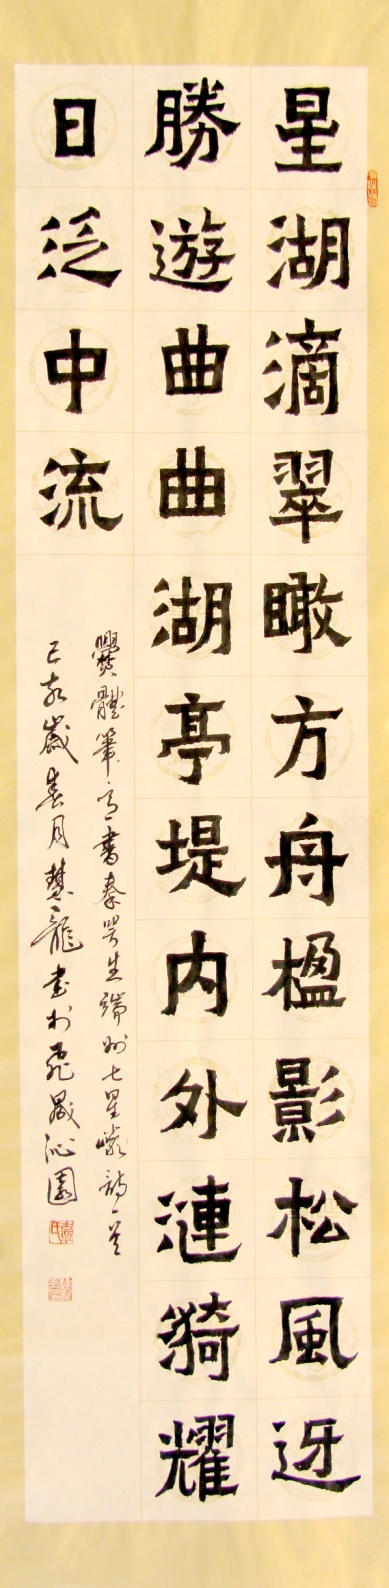 星湖滴翠瞰方舟楹影松風迓
勝遊曲曲湖亭堤內外漣猗耀
日泛中流
爨體筆意書秦咢生端州七星巖詩一首
己亥歲春月慧龍書於飛晟沁園